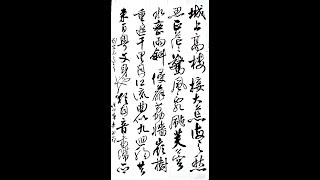 城上高樓接大荒海天愁
思正茫茫驚風亂颭芙蓉
水密雨斜侵薜荔牆嶺樹
重遮千里目江流曲似九迴腸共
來百粵文身地猶自音書滯一